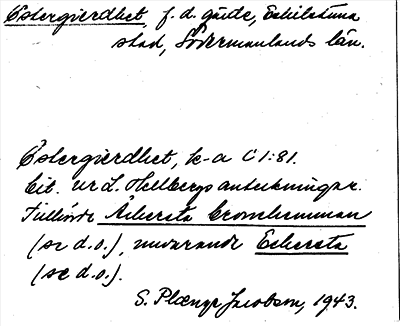 Östergierdhet, f. d. gärde, Eskilstuna
stad, Södermanlands län.
Östergierdhet, k-a C 1:81.
Cit. ur L. Hellbergs anteckningar.
Tillhörde Åkersta
(se d.o.), nuvarande Eckersta
(se d.o.).
S. Jacobson, 1943.